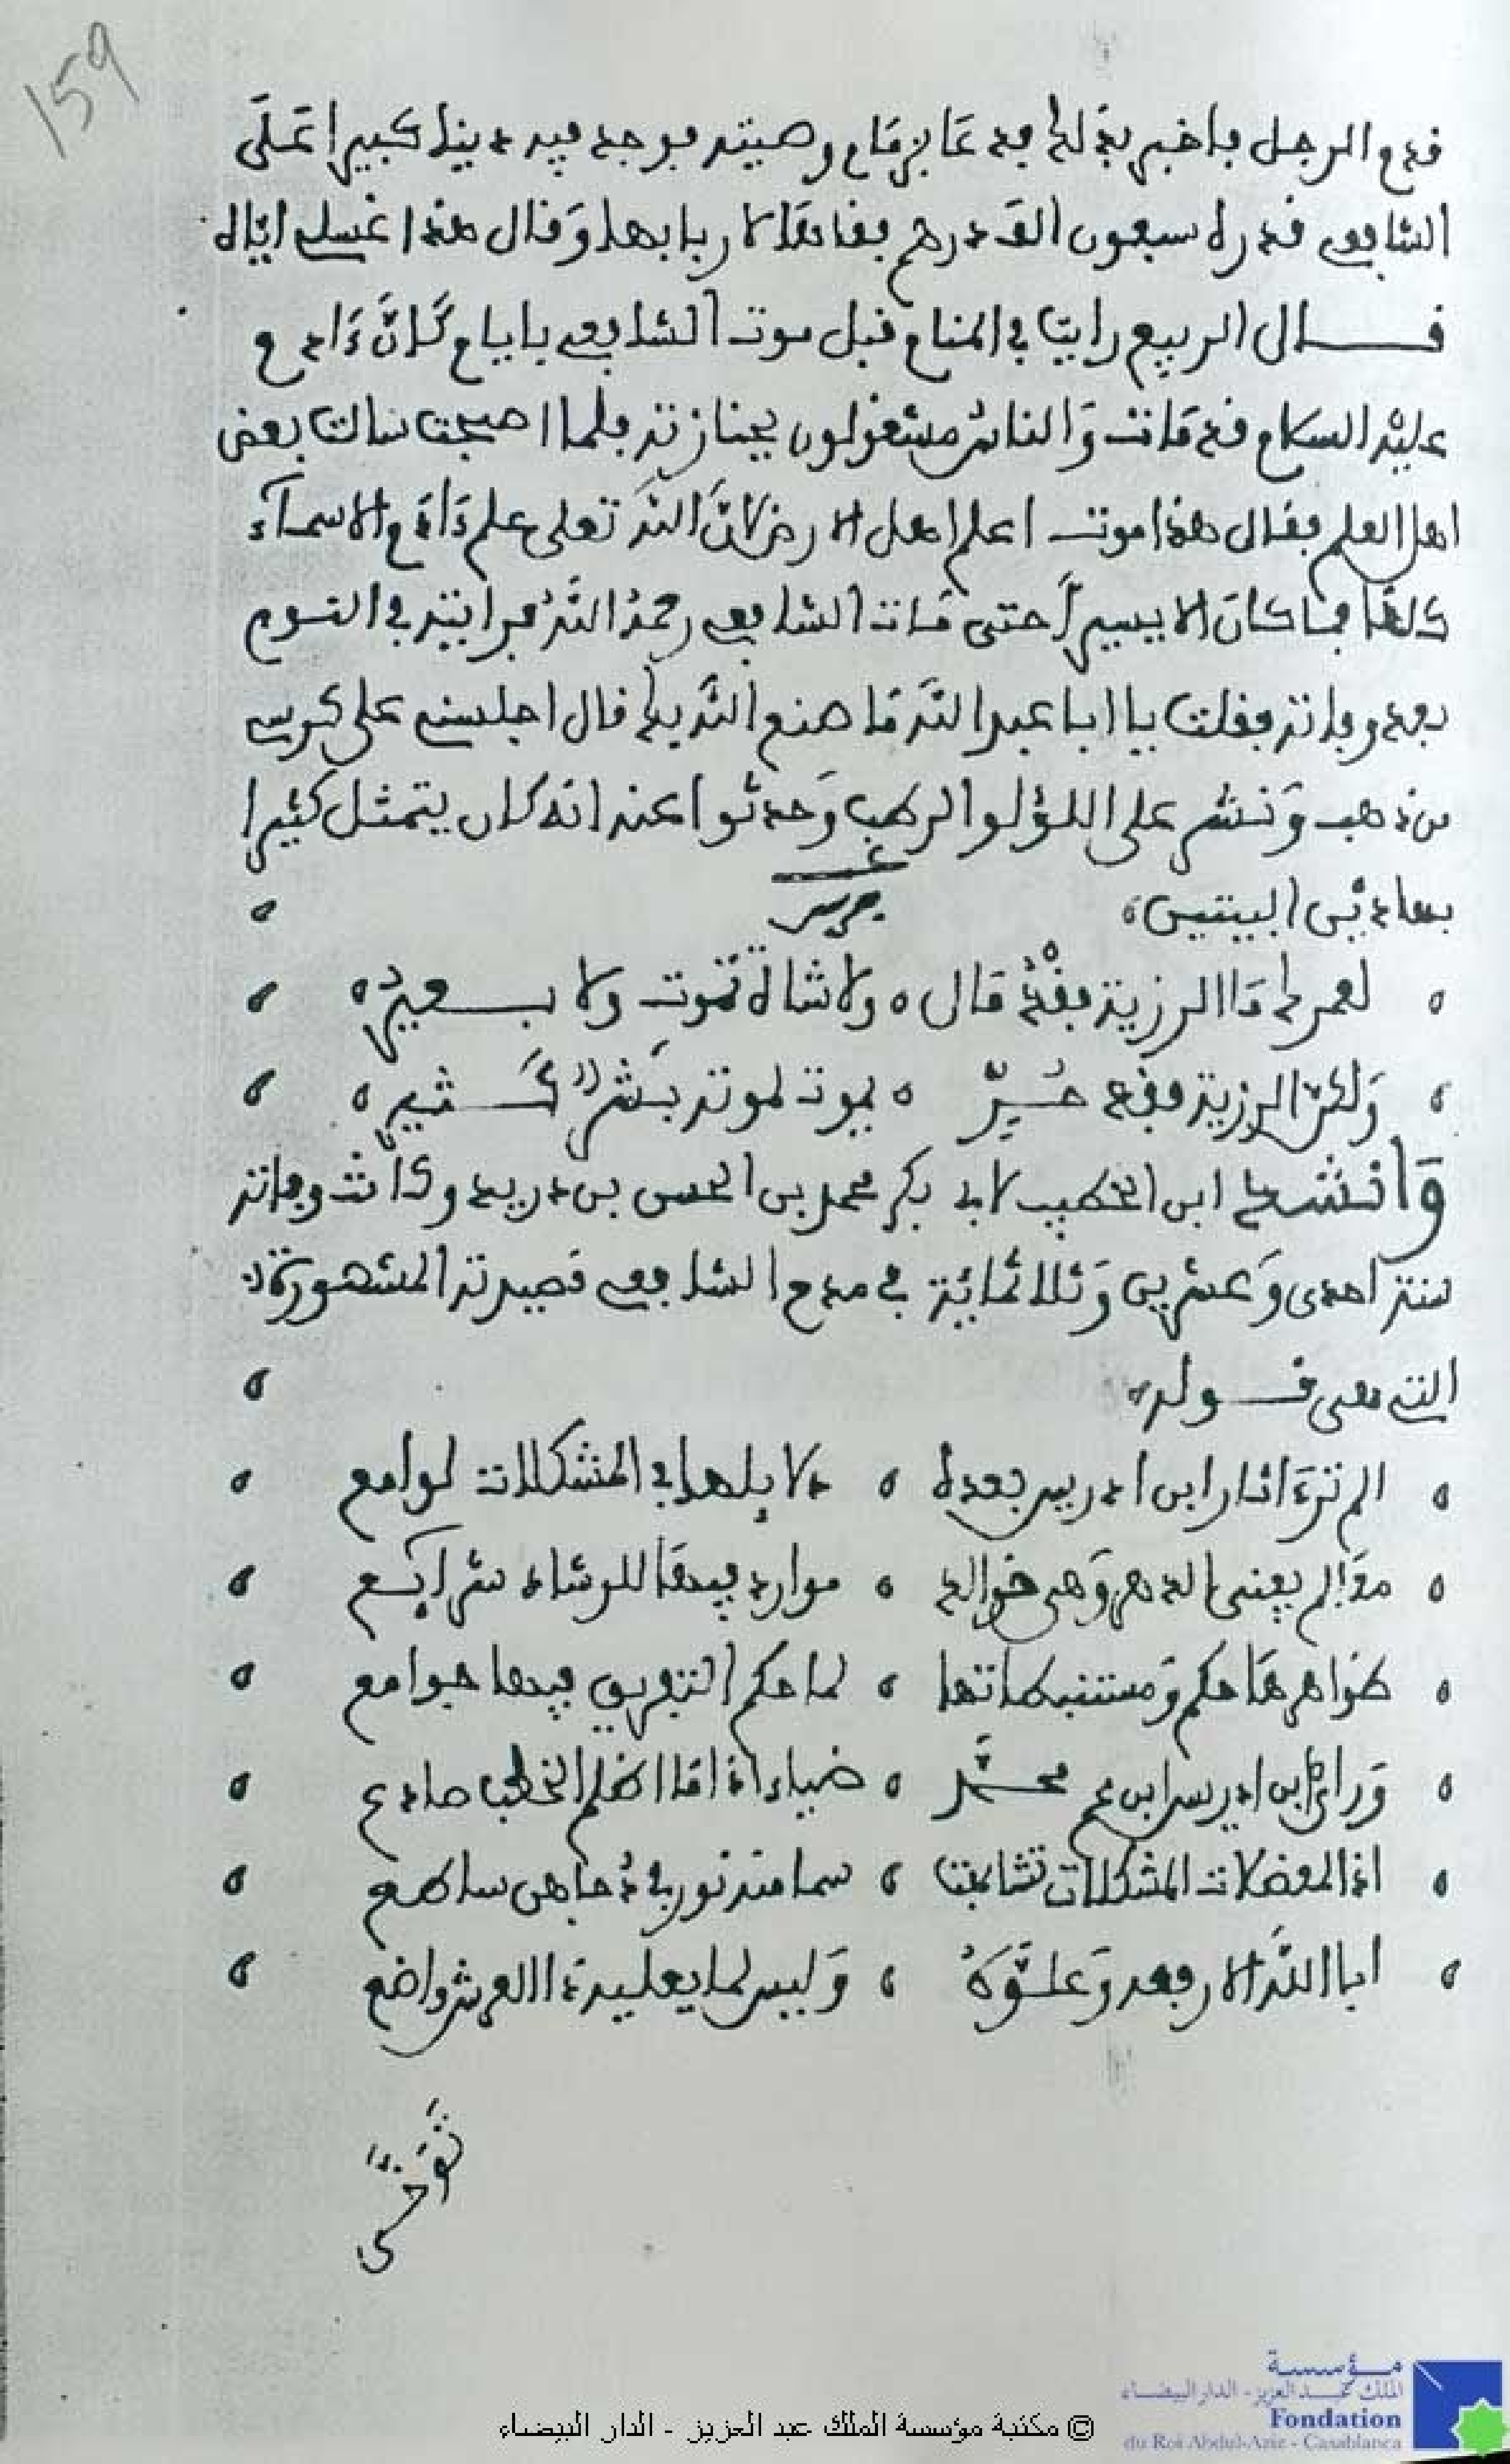 159
قدم الرجل فاخبر بذلك فدعا بزمام وصيته فوجد فيه دينا كبيرا على
الشافعى قدره سبعون الف درهم فقاضا لاربابها وقال هذا غسلى اياه
قــال الربيع رايت في المنام قبل موت الشافعى بايام كان ءادم
عليه السلام قد مات والناس مشغولون بجنازته فلما اصبحت سالت بعض
اهل العلم فقال هذا موت اعلم اهل الارض لان الله تعلى علم ءادم الاسماء
كلها فما كان الا يسيرا حتى مات الشافعى رحمه الله فرايته في النوم
بعد وفاته فقلت يا ابا عبد الله ما صنع الله بك قال اجلسنى على كرسى
من ذهب ونثر على اللؤلو الرطب وحدثوا عنه انه كان يتمثل كثيرا
بهاذين البيتين
لعمرك ما الرزية فقد مال ولا شاة تموت ولا بــعير
ولكن الرزية فقد حــر يموت لموته بشر كــثير
وانشد ابن الخطيب لابى بكر محمد بن الحسن بن دريد وكانت وفاته
سنة احدى وعشرين وثلاثمائة في مدح الشافعى قصيدته المشهورة
التى هى قــوله
الم تر ءاثار ابن ادريس بعده دلايلها في المشكلات لوامع
معالم يفنى الدهر وهى خوالد موارد فيها للرشاد شرايع
ظواهرها حكم ومستنبطاتها لما حكم التفريق فيها جوامع
وراى ابن ادريس ابن عم محمد ضياء اذا ما اظلم الخطب صادع
اذا المعضلات المشكلات تشابهت سما منه نور في دجاهن ساطع
ابا الله الا رفعه وعلوه وليس لما يعليه ذا العرش واضع
مؤسسة
الملك عبد العزيز - الدار البيضاء
Fondation
du Roi Abdul-Aziz - Casablanca
© مكتبة مؤسسة الملك عبد العزيز - الدار البيضاء